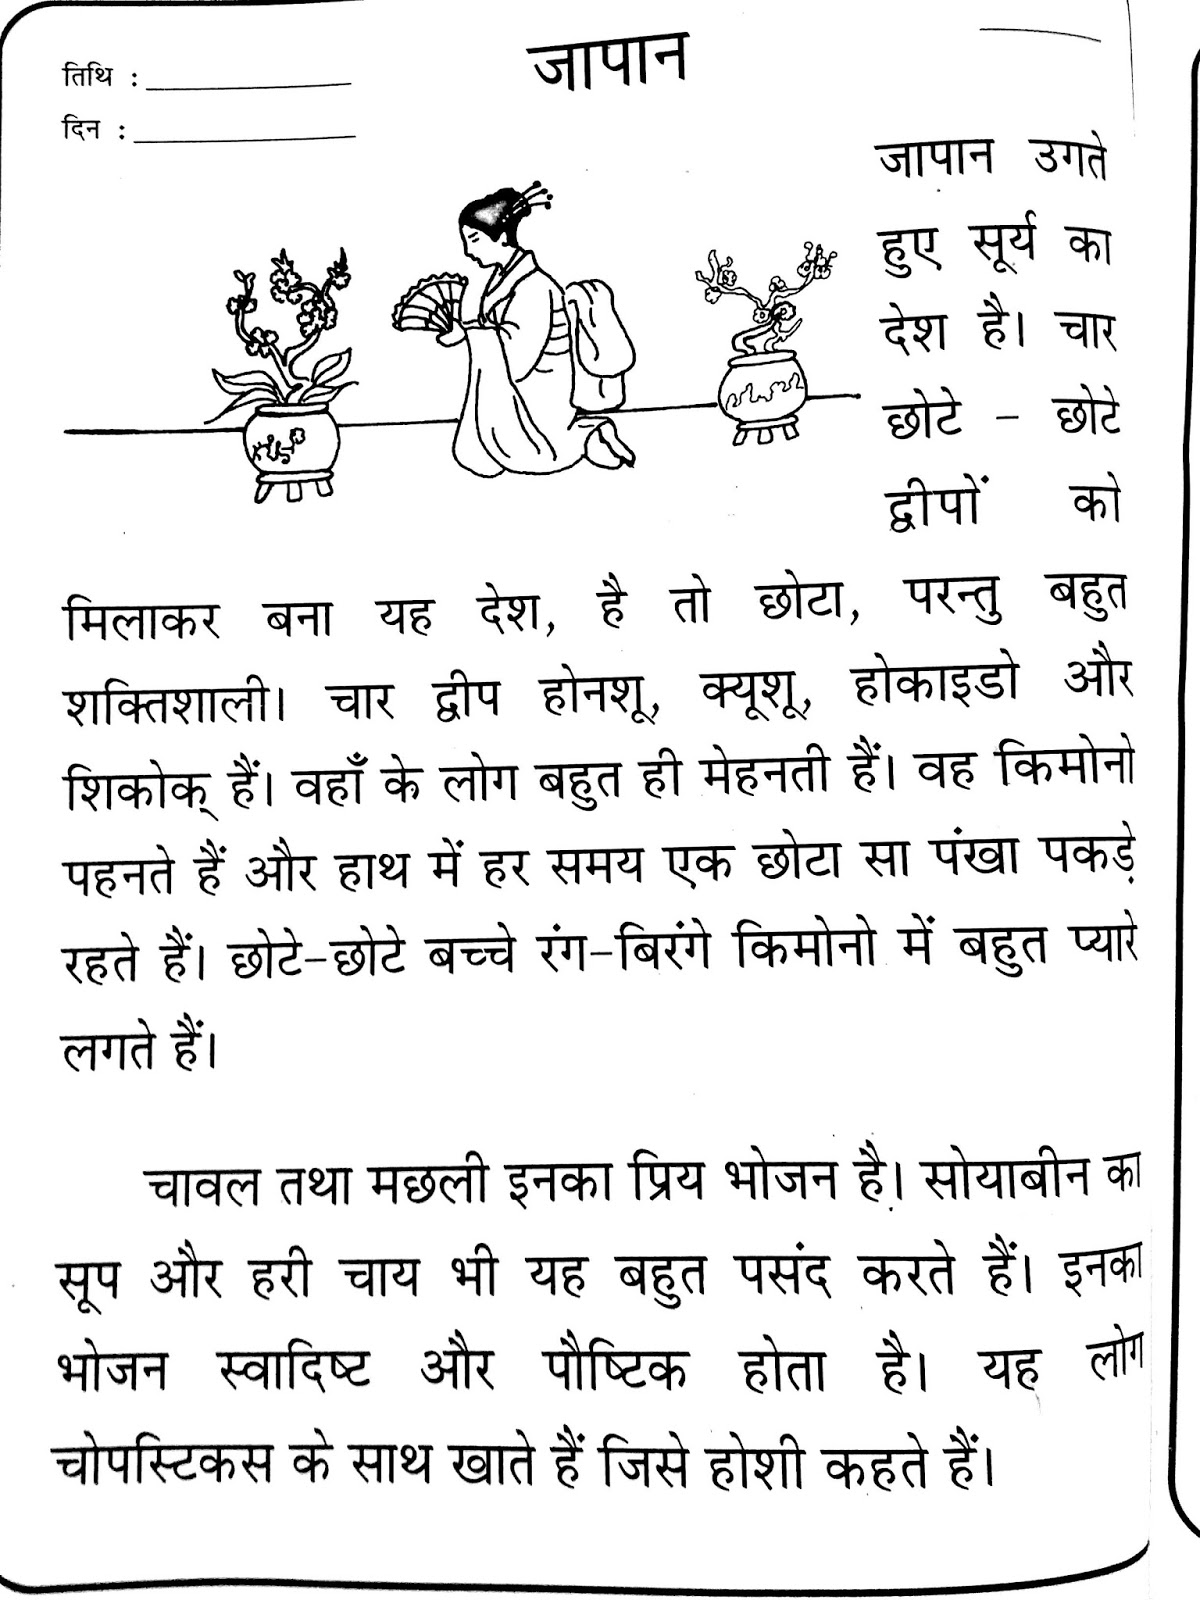 जापान
तिथि :
दिन :
जापान उगते
हुए सूर्य का
देश है। चार
छोटे - छोटे
द्वीपों को
मिलाकर बना यह देश, है तो छोटा, परन्तु बहुत
शक्तिशाली। चार द्वीप होनशू, क्यूशू, होकाइडो और
शिकोक् हैं। वहाँ के लोग बहुत ही मेहनती हैं। वह किमोनो
पहनते हैं और हाथ में हर समय एक छोटा सा पंखा पकड़े
रहते हैं। छोटे-छोटे बच्चे रंग-बिरंगे किमोनो में बहुत प्यारे
लगते हैं।
चावल तथा मछली इनका प्रिय भोजन है। सोयाबीन का
सूप और हरी चाय भी यह बहुत पसंद करते हैं। इनका
भोजन स्वादिष्ट और पौष्टिक होता है। यह लोग
चोपस्टिकस के साथ खाते हैं जिसे होशी कहते हैं।